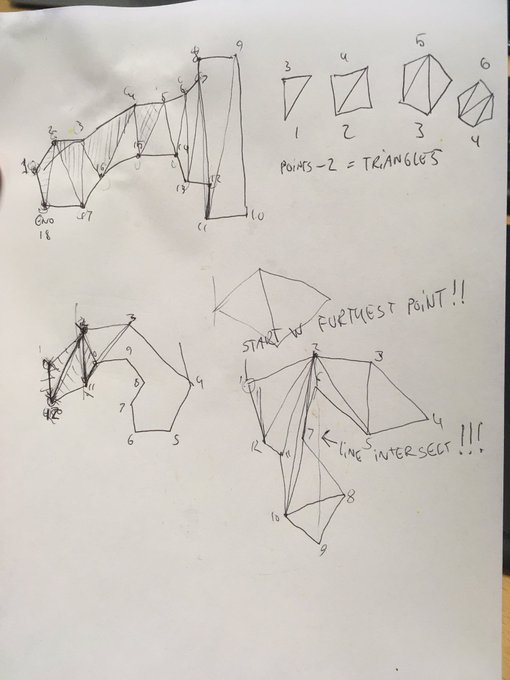 8 9
3 4 5 6
1 2 3 4
POINTS-2 = TRIANGLES
2 3 4 5 6 7
1
16 15 14 13 12
END
18 17 11 10
START W FURTHEST POINT!!
3
1 10 9 4
11 8
7
6 5
2 3
1 6
4
12 11 7 5
LINE INTERSECT!!!
10 8
9